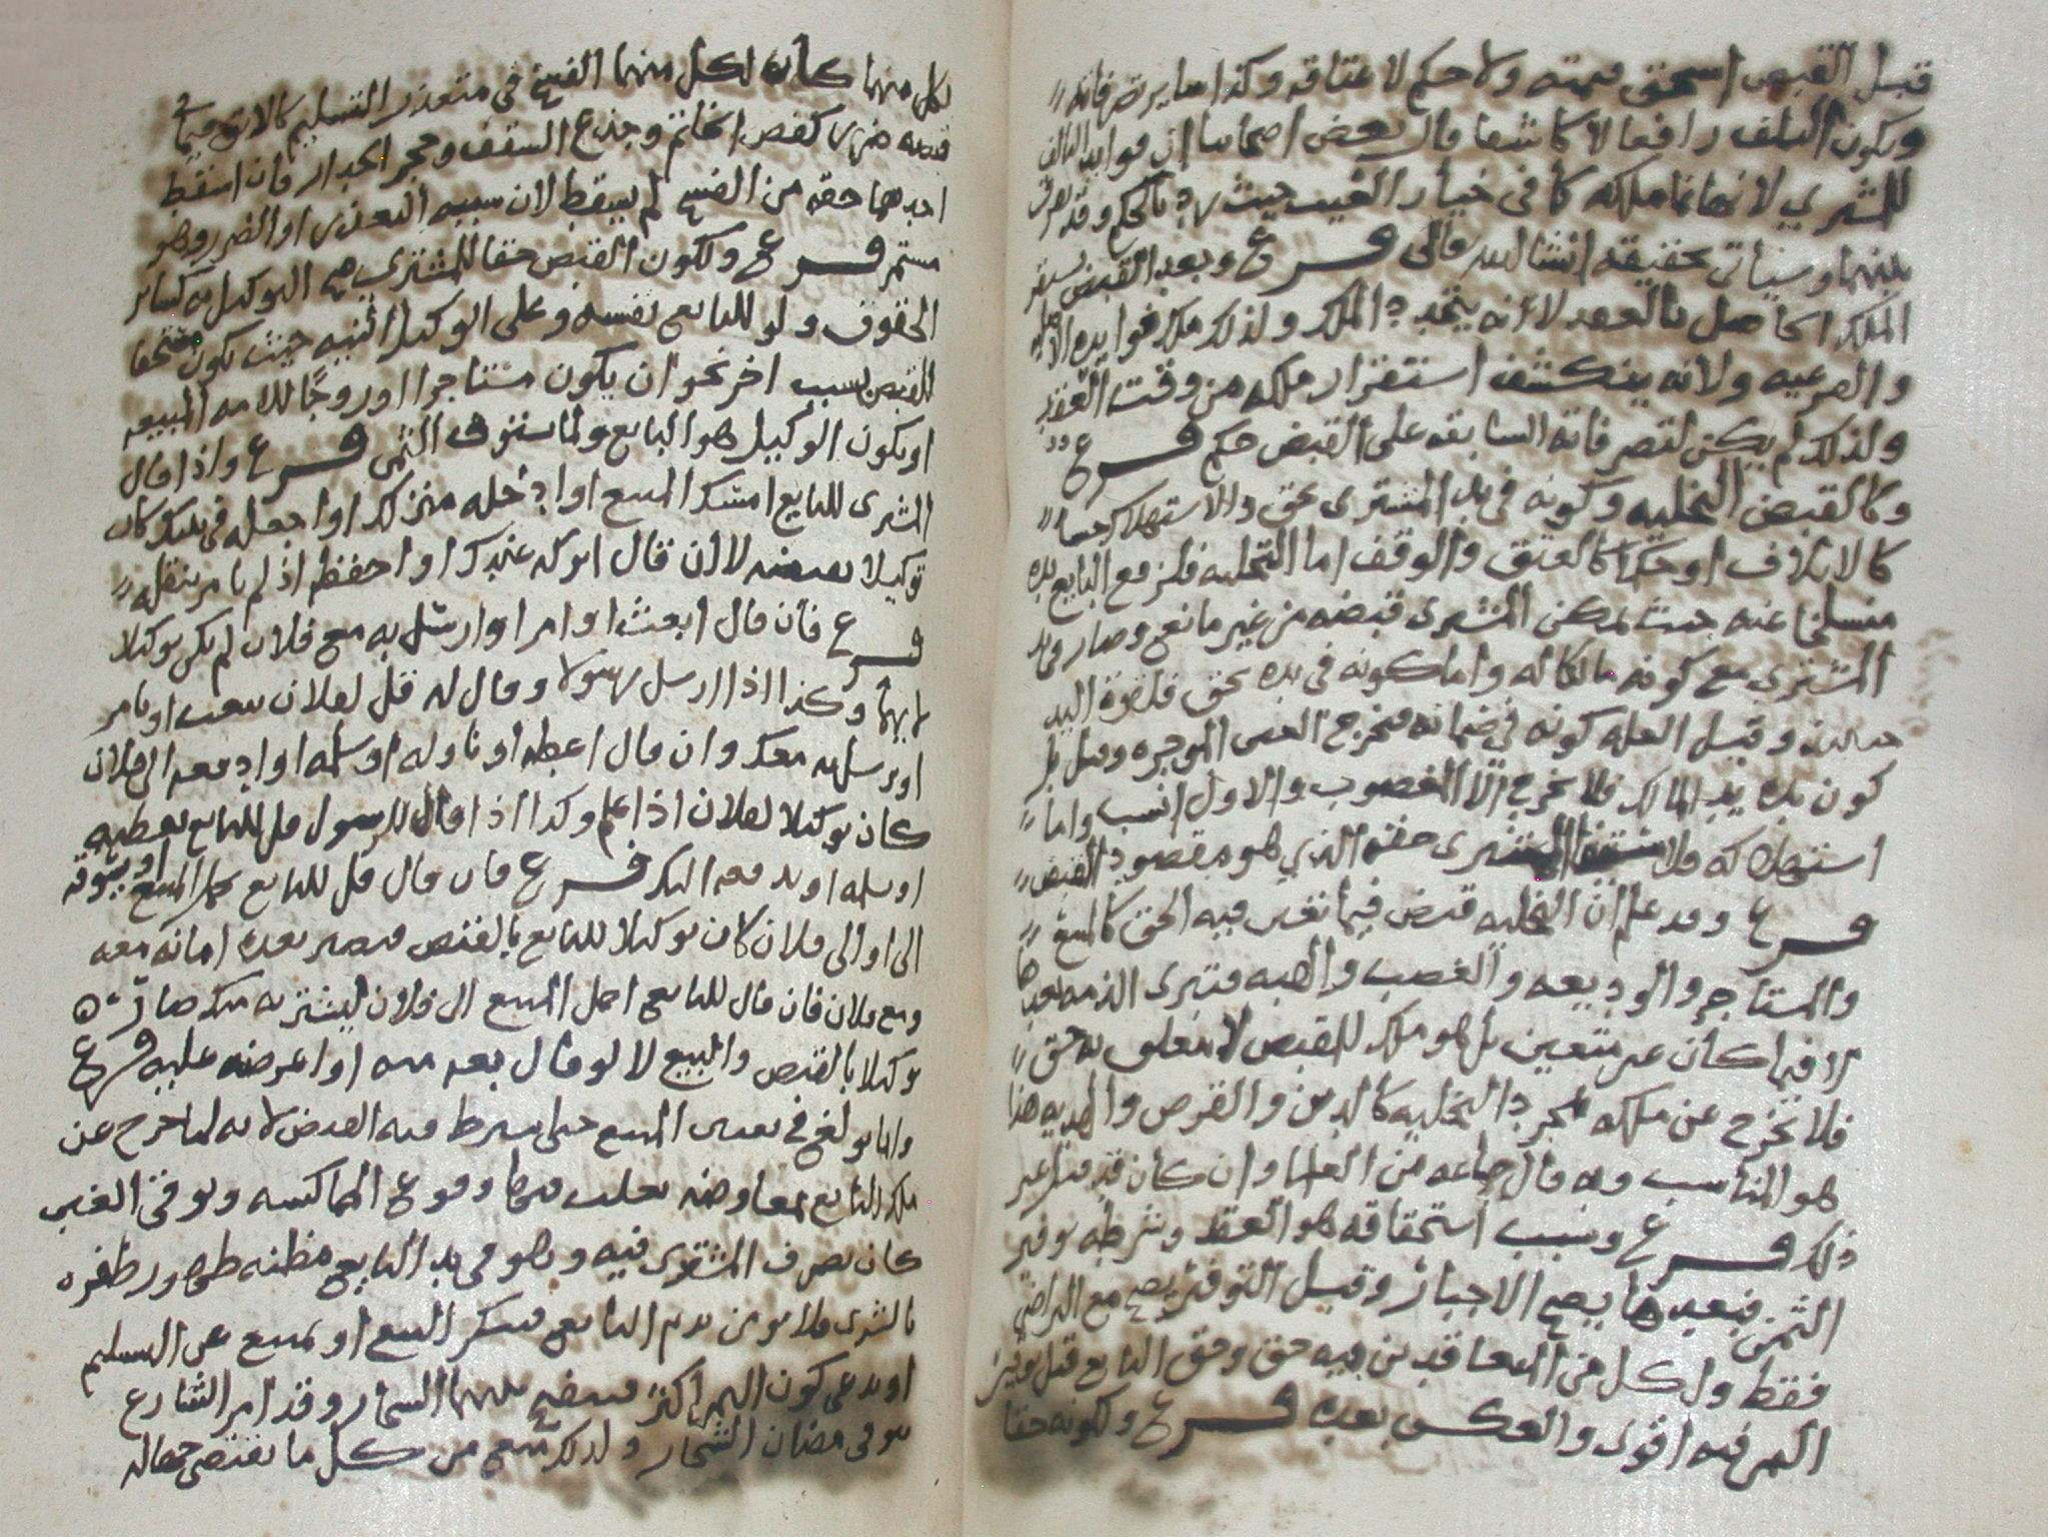 قبل القبض استحق قيمته ولا حكم لاعتاقه وكذا ساير تصرفاته
ويكون التلف رافعا لا كاشفا قال بعض اصحابنا ان فوايد التالف
للمشتري لانها نما ملكه كما في خيار العيب حيث رد بالحكم وقد يفرق
بينهما وسياتي تحقيقه انشا الله تعالى فرع وبعد القبض يستقر
الملك الحاصل بالعقد لا انه يتجدد الملك ولذلك ملك فوايده الاصليه
والفرعيه ولانه ينكشف استقرار ملكه من وقت العقد
ولذلك لم يكن لتصرفاته السابقه على القبض حكم فرع
وكالقبض التخليه وكونه في يد المشتري بحق والاستهلاك حسا
كالاتلاف او حكما كالعتق والوقف اما التخليه فلرفع البايع يده
متسلخا عنه حيث يمكن المشتري قبضه من غير مانع وصار في يد
المشتري مع كونه مالكا له واما كونه في يده بحق فلقوة اليد
حينئذ وقيل العله كونه في ضمانه فيخرج العين الموجره وقيل بل
كون يده يد المالك فلا يخرج الا المغصوب والاول انسب واما
استهلاكه فلاستيفا المشتري حقه الذي هو مقصود القبض
فرع وقد علم ان التخليه قبض فيما تعين فيه الحق كالمبيع
والمستاجر والوديعه والغصب والهبه فتبرى الذمه بعدها
لا فيما كان غير متعين بل هو ملك للقبض لا يتعلق به حق
فلا يخرج عن ملكه بمجرد التخليه كالدين والقرض والهديه هذا
هو المناسب وبه قال جماعه من العلما وان كان قد قيل غير
ذلك فرع وسبب استحقاقه هو العقد وشرطه توفير
الثمن فبعدها يصح الاجبار وقبل التوفير يصح مع التراضي
فقط ولكل من المتعاقدين فيه حق وحق البايع قبل توفير
الثمن فيه اقوى والعكس بعده فرع ولكونه حقا
لكل منهما كان لكل منهما الفسخ في متعذر التسليم كالابق وفيما في
قبضه ضرر كفص الخاتم وجذع السقف وحجر الجدار فان اسقط
احدهما حقه من الفسخ لم يسقط لان سببه التعذر او الضرر وهو
مستمر فرع ولكون القبض حقا للمشتري صح التوكيل به كساير
الحقوق ولو للبايع نفسه وعلى الوكيل البينه حيث يكون مستحقا
للقبض بسبب اخر نحو ان يكون مستاجرا او زوجا للامه المبيعه
او يكون الوكيل هو البايع ولما يستوف الثمن فرع واذا قال
المشتري للبايع امسك المبيع او ادخله منزلك او اجعله في ملكك كان
توكيلا بقبضه لا ان قال اتركه عندك او احفظه اذ لم يامر بنقله
فرع فان قال ابعث او امر او ارسل به مع فلان لم يكن توكيلا
لايهما وكذا اذا ارسل رسولا وقال له قل لفلان يبعث او يامر
او يرسل به معك وان قال اعطه او ناوله او سلمه او ادفعه الى فلان
كان توكيلا لفلان اذا علم وكذا اذا قال للرسول قل للبايع يعطيه
او يسلمه او يدفعه اليك فرع فان قال قل للبايع يحمل المبيع او يسوقه
الي او الى فلان كان توكيلا للبايع بالقبض فيصير بعده امانه معه
ومع فلان فان قال للبايع احمل المبيع الى فلان ليشتريه منك صار
توكيلا بالقبض والبيع لا لو قال بعه منه او اعرضه عليه فرع
وانما بولغ في تعيين المبيع حتى شرط فيه القبض لانه لما خرج عن
ملك البايع بمعاوضه يغلب فيها وقوع المماكسه وتوقي الغبن
كان تصرف المشتري فيه وهو في يد البايع مظنه ظهور ظفره
بالشرى فلا يومن ندم البايع فينكر البيع او يمتنع عن التسليم
او يدعي كون الثمن اكثر فيفضي بينهما الشجار وقد امر الشارع
بتوقي مضان الشجار ولذلك منع من كل ما يقتضي جهاله